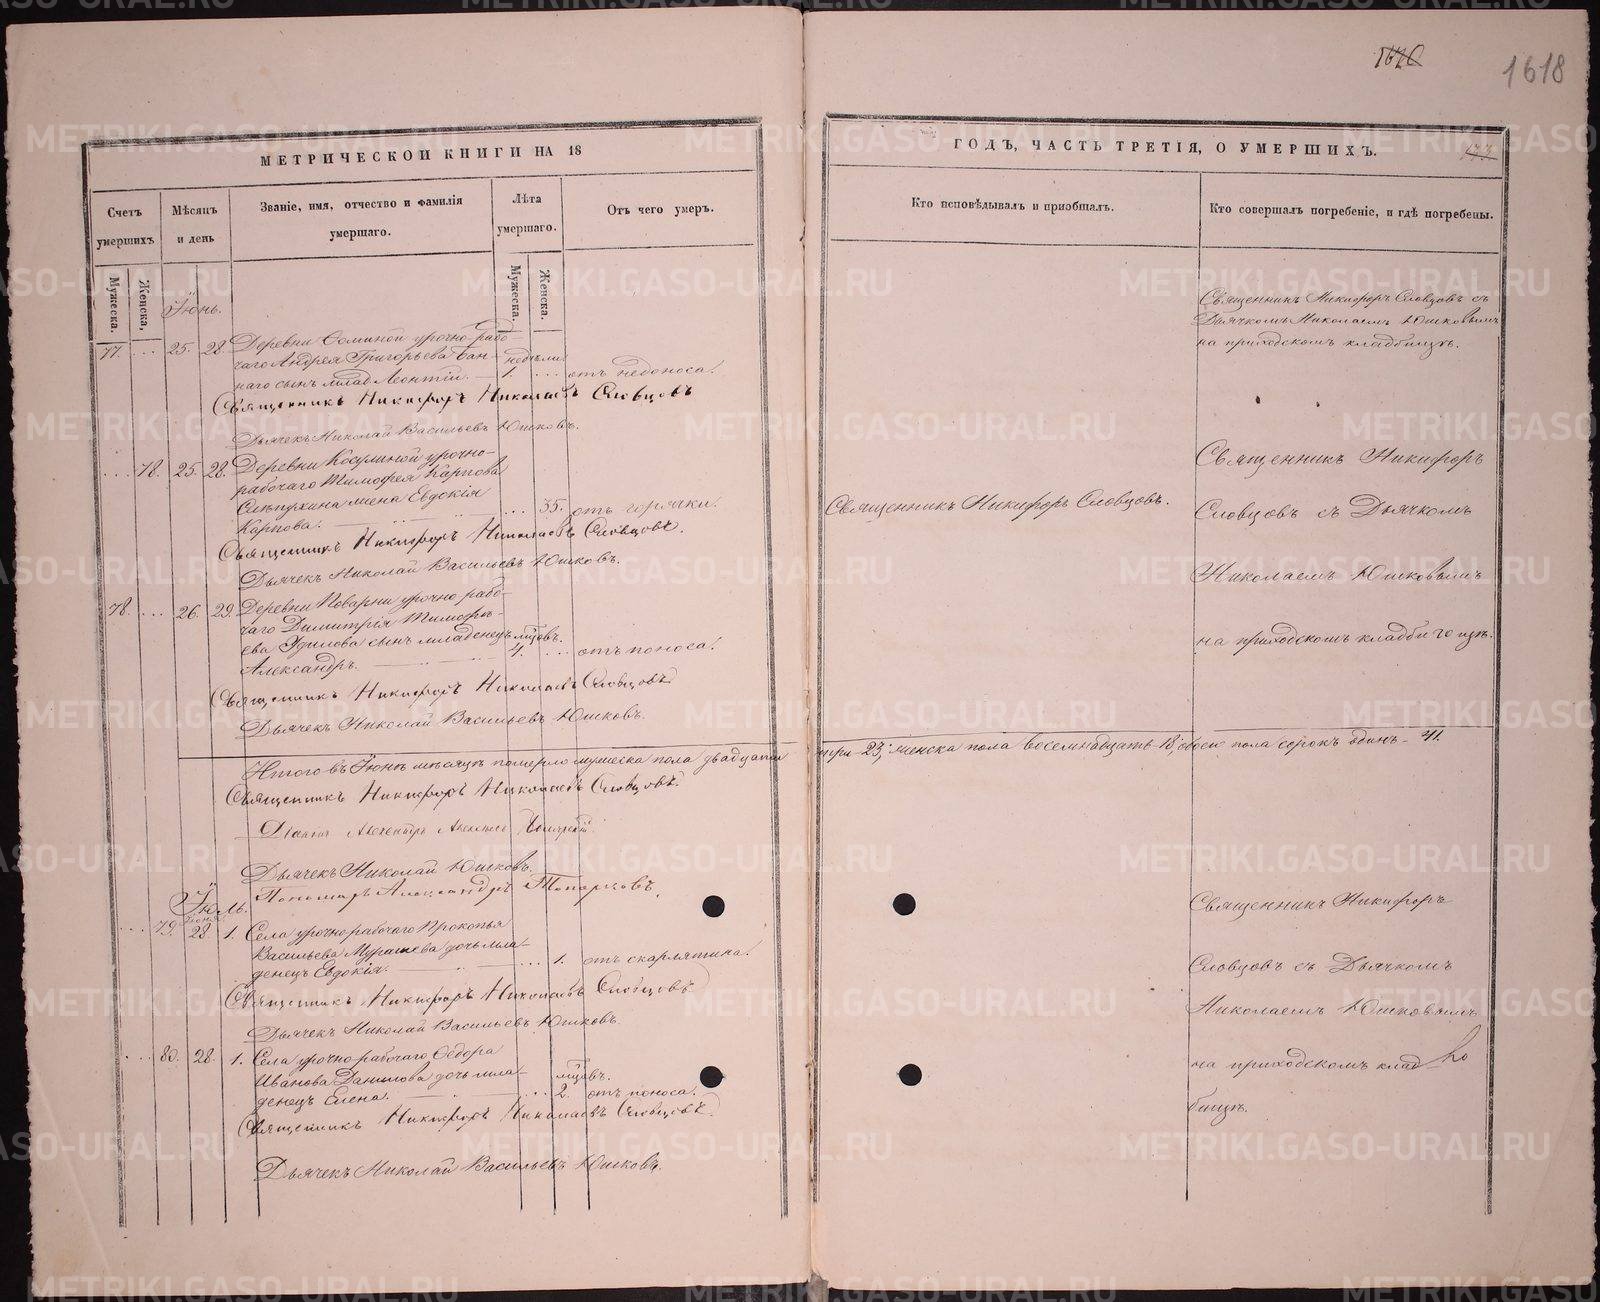 1618
МЕТРИЧЕСКОЙ КНИГИ НА 18
ГОДЪ, ЧАСТЬ ТРЕТІЯ, О УМЕРШИХЪ.
Счетъ умершихъ
Мѣсяцъ и день
Званіе, имя, отчество и фамилія умершаго.
Лѣта умершаго.
Отъ чего умеръ.
Кто исповѣдывалъ и пріобщалъ.
Кто совершалъ погребеніе, и гдѣ погребены.
Мужеска.
Женска,
Мужеска.
Женска.
Іюнь.
77. ... 25. 28. Деревни урочно-рабо-
чаго Андрея Григорьева Бан- недѣли
наго сынъ млад. Леонтій. 1. ... отъ недоноса.
Священникъ Никифоръ Николаевъ Словцовъ
Дьячекъ Николай Васильевъ Юшковъ.
Священникъ Никифоръ Словцовъ съ
Дьячкомъ Николаемъ Юшковымъ
на приходскомъ кладбищѣ.
... 78. 25. 28. Деревни Косулиной урочно-
рабочаго Тимофея Карпова
жена Евдокія
Карпова. ... 35. отъ горячки.
Священникъ Никифоръ Николаевъ Словцовъ.
Дьячекъ Николай Васильевъ Юшковъ.
Священникъ Никифоръ Словцовъ.
Священникъ Никифоръ
Словцовъ съ Дьячкомъ
Николаемъ Юшковымъ
на приходскомъ кладбищѣ.
78. ... 26. 29. Деревни Поварни урочно рабо-
чаго Димитрія Тимофѣ-
ева сынъ младенецъ мѣсцовъ.
Александръ. 4. ... отъ поноса.
Священникъ Никифоръ Николаевъ Словцовъ
Дьячекъ Николай Васильевъ Юшковъ.
Итого въ Іюнѣ мѣсяцѣ померло мужеска пола двадцать три 23, женска пола восемнадцать 18, обоего пола сорокъ одинъ - 41.
Священникъ Никифоръ Николаевъ Словцовъ.
Дьячекъ Николай Юшковъ.
Пономарь Александръ Топорковъ.
Іюль.
Іюня
... 79. 28. 1. Села урочнорабочаго Прокопья
Васильева Мурашева дочь мла-
денецъ Евдокія. ... 1. отъ скарлатина.
Священникъ Никифоръ Николаевъ Словцовъ
Дьячекъ Николай Васильевъ Юшковъ.
Священникъ Никифоръ
Словцовъ съ Дьячкомъ
Николаемъ Юшковымъ
на приходскомъ клад
бищѣ.
... 80. 28. 1. Села урочно-рабочаго Ѳедора
Иванова Данилова дочь мла- мѣсцовъ.
денецъ Елена. ... 2. отъ поноса.
Священникъ Никифоръ Николаевъ Словцовъ.
Дьячекъ Николай Васильевъ Юшковъ.
METRIKI.GASO-URAL.RU